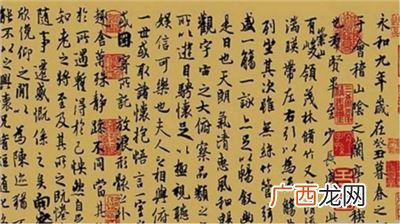 永和九年歲在癸丑暮春
于會稽山陰之蘭亭
群賢畢至
有崇山峻領茂林脩竹又
湍暎帶左右引以為流觴
列坐其次雖無絲竹管
盛一觴一詠亦足以暢敘
是日也天朗氣清惠風和
觀宇宙之大俯察品類之
所以遊目騁懷足以極視
娛信可樂也夫人之相與俯
一世或取諸懷抱悟言一
或因寄所託放浪形骸
趣舍萬殊靜躁不同當
於所遇暫得於己快然自
知老之將至及其所之既惓
隨事遷感慨係之矣向
欣俛仰之閒以為陳跡
能不以之興懷
广西龙网